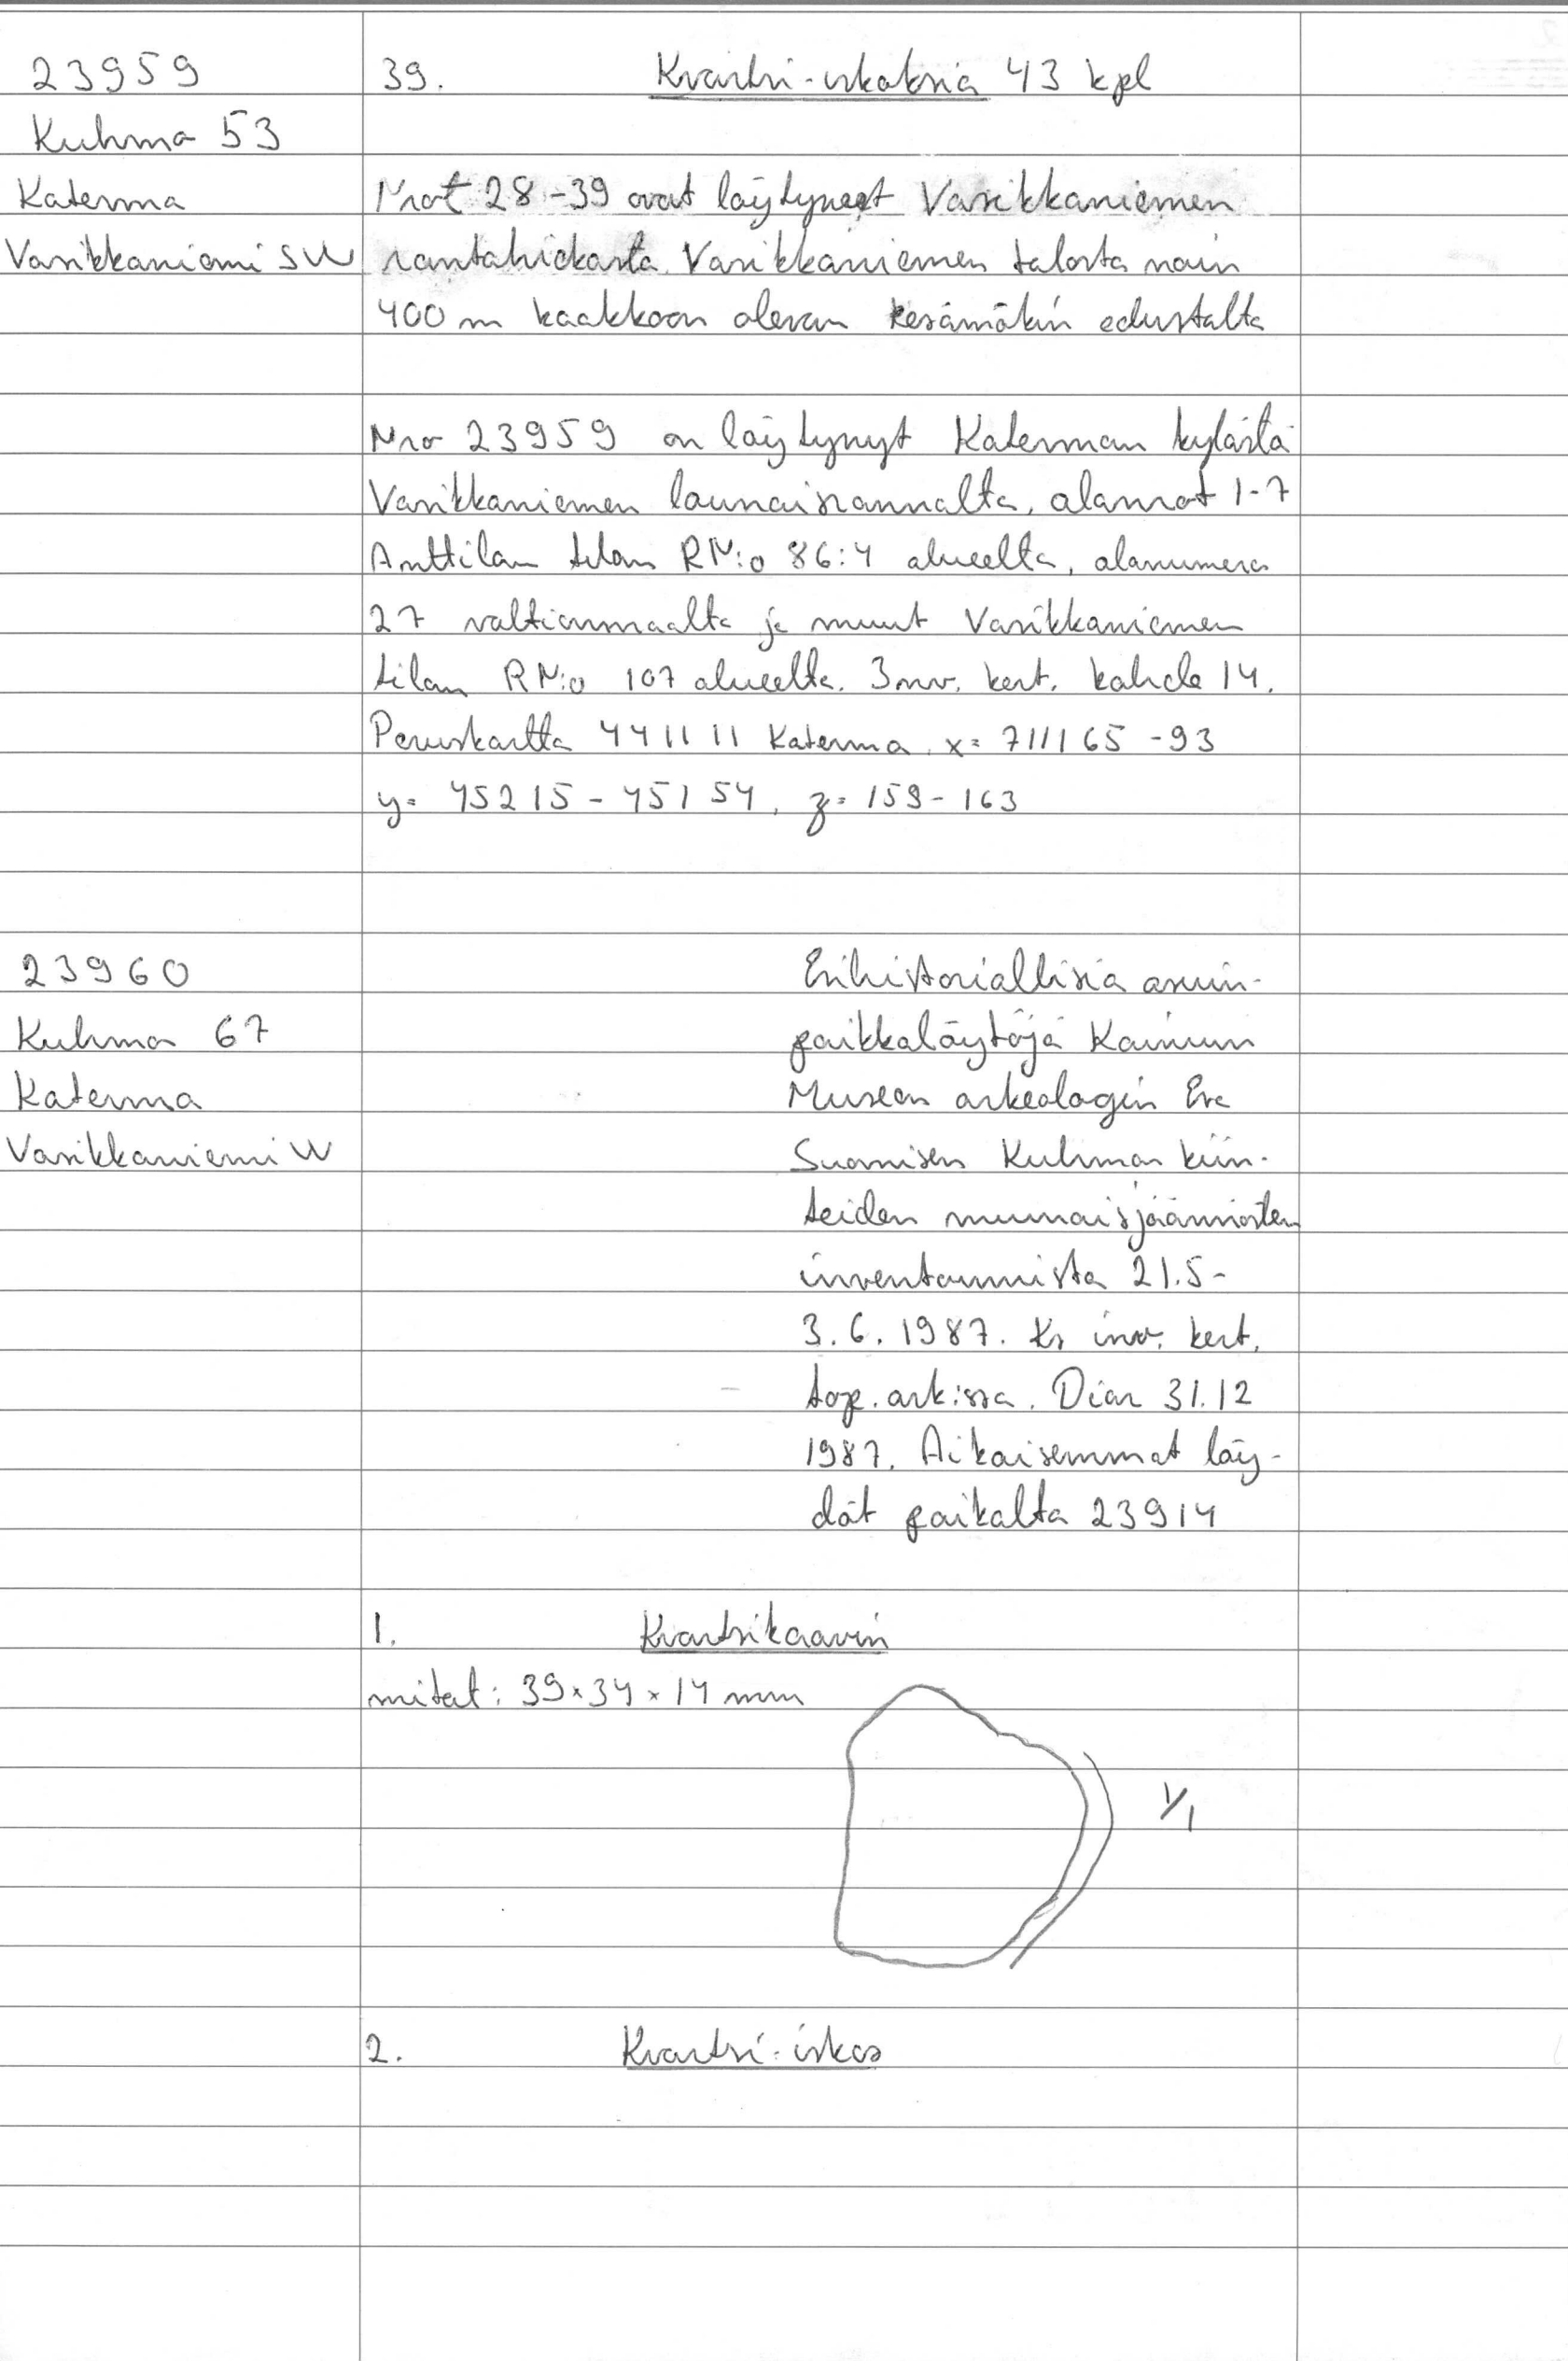 23959
Kuhmo 53
Katerma
Vasikkaniemi SW
39. Kvartsi-iskoksia 43 kpl
Nrot 28-39 ovat löytyneet Vasikkaniemen
rantahiekasta Vasikkaniemen talosta noin
400 m kaakkoon olevan kesämökin edustalta
Nro 23959 on löytynyt Katerman kylästä
Vasikkaniemen lounaisrannalta, alanrot 1-7
Anttilan tilan RN:o 86:4 alueelta, alanumero
27 valtionmaalta ja muut Vasikkaniemen
tilan RN:o 107 alueelta. 3 nv. kert. kohde 14.
Peruskartta 4411 11 Katerma, x= 7111 65 -93
y= 45215-45154, z= 159-163
23960
Kuhmo 67
Katerma
Vasikkaniemi W
Esihistoriallisia asuin-
paikkalöytöjä Kainuun
Museon arkeologin Esa
Suomisen Kuhmon kiin-
teiden muinaisjäännösten
inventoinnista 21.5-
3.6.1987. Ks inv. kert.
top.ark:issa. Diar 31.12
1987. Aikaisemmat löy-
döt paikalta 23914
1. Kvartsikaavin
mitat: 39x34x14 mm
1/1
2. Kvartsi-iskos